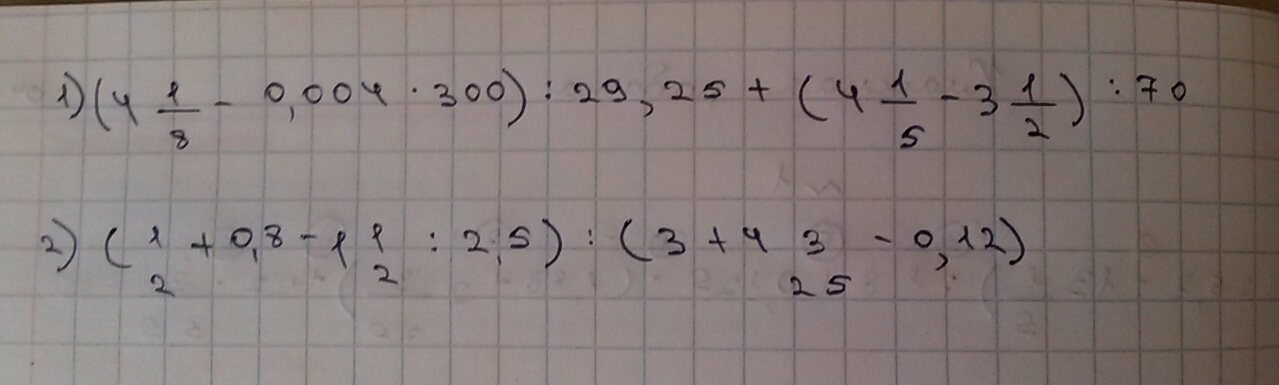 1) (4 1/8 - 0,004 · 300) : 29,25 + (4 1/5 - 3 1/2) : 70
2) (1/2 + 0,8 - 1 1/2 : 2,5) : (3 + 4 3/25 - 0,12)